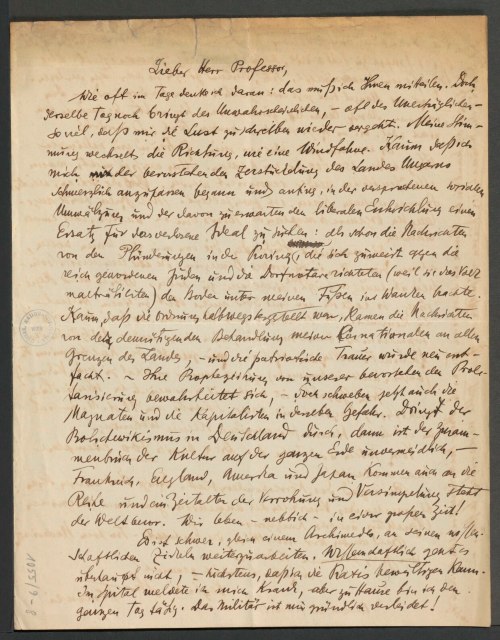 Lieber Herr Professor,
Wie oft im Tage denke ich daran: das muß ich Ihnen mitteilen. Doch
derselbe Tag noch bringt des Unwahrscheinlichen, – oft des Unerträglichen –
soviel, daß mir die Lust zu schreiben wieder vergeht. Meine Stim-
mung wechselt die Richtung, wie eine Windfahne. Kaum daß ich
mich mit der bevorstehenden Zerstückelung des Landes Ungarns
schmerzlich anzufassen begann und anfing, in der versprochenen sozialen
Umwälzung und der davon zu erwartenden liberalen Entwicklung einen
Ersatz für das verlorene Ideal zu suchen: als schon die Nachrichten
von den Plünderungen in der Provinz, die sich zumeist gegen die
reich gewordenen Juden und die Dorfnotare richteten (weil sie das Volk
malträtierten) den Boden unter meinen Füßen ins Wanken brachte.
Kaum, daß die Ordnung halbwegs hergestellt war, kamen die Nachrichten
von der demütigenden Behandlung meiner Connationalen an allen
Grenzen des Landes, – und die patriotische Trauer wurde neu ent-
facht. – Ihre Prophezeihung von unserer bevorstehenden Prole-
tarisierung bewahrheitet sich, – doch schweben jetzt auch die
Magnaten und die Kapitalisten in derselben Gefahr. Dringt der
Bolschewikismus in Deutschland durch, dann ist der Zusam-
menbruch der Kultur auf der ganzen Erde unvermeidlich, –
Frankreich, England, Amerika und Japan kommen auch an die
Reihe und ein Zeitalter der Verrohung und steht
der Welt bevor. Wir leben – nebbich – in einer großen Zeit!
Es ist schwer, gleich einem Archimedes, an seinen wissen-
schaftlichen Zirkeln weiterzuarbeiten. Wissenschaftlich geht es
überhaupt nicht, – höchstens, daß ich die Praxis bewältigen kann.
Im Spital meldete ich mich krank, aber zu Hause bin ich den
ganzen Tag tätig. Das Militär ist mir gründlich verleidet!
1055/9-8